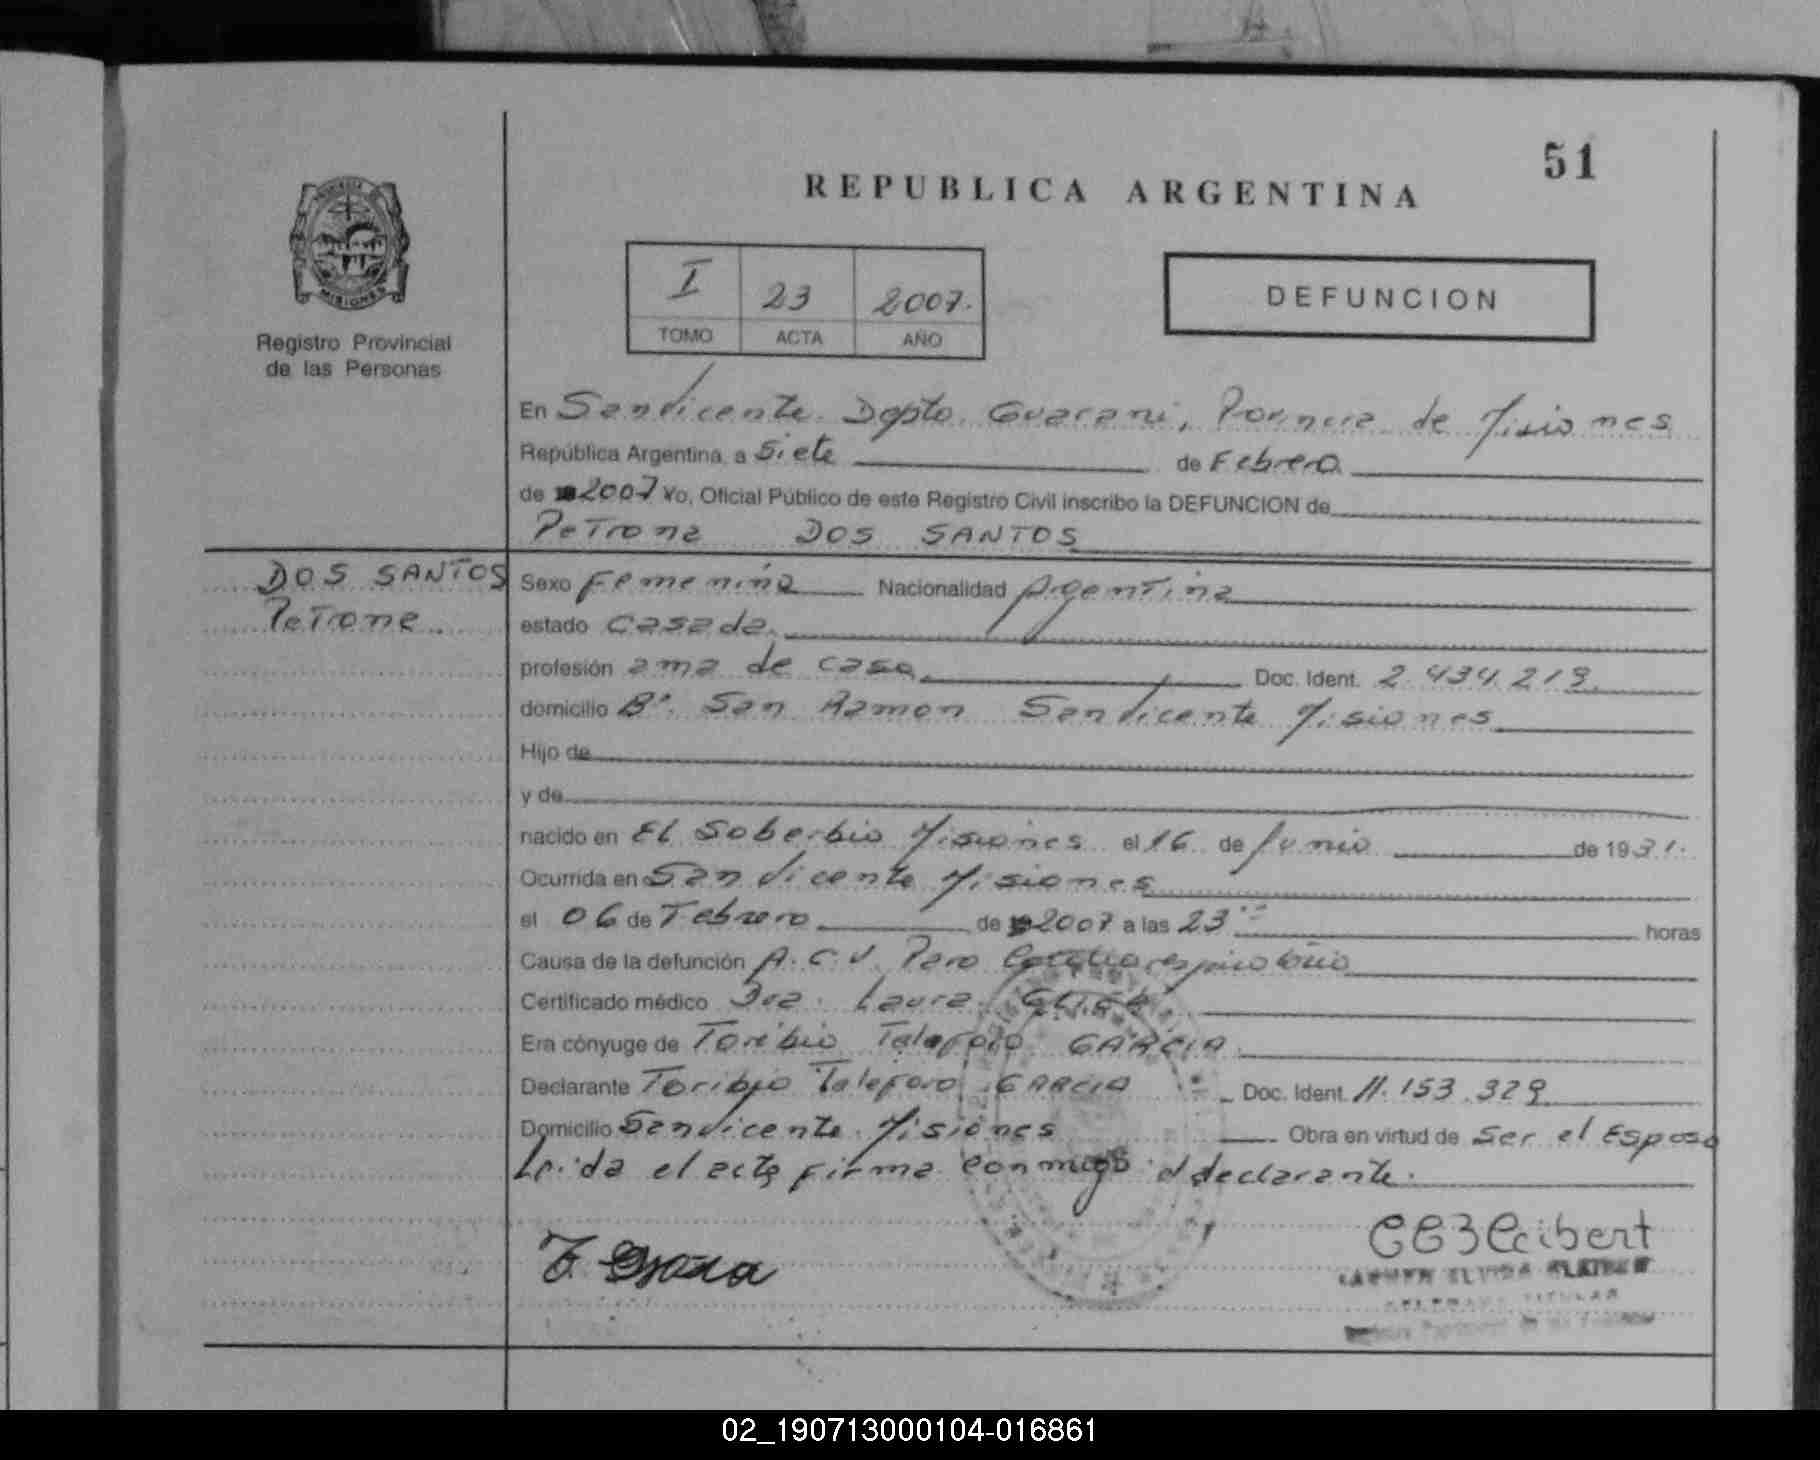 51
REPUBLICA ARGENTINA
MISIONES
Registro Provincial
de las Personas
I 23 2007.
TOMO ACTA AÑO
DEFUNCION
En San Vicente. Depto. Guarani, Provincia de Misiones
República Argentina, a Siete de Febrero
de 2007 Yo, Oficial Público de este Registro Civil inscribo la DEFUNCION de
Petrona DOS SANTOS
DOS SANTOS
Petrona.
Sexo Femenino Nacionalidad Argentina
estado Casada.
profesión ama de casa. Doc. Ident. 2.434.219
domicilio Bº. San Ramon San Vicente Misiones
Hijo de
y de
nacido en El Soberbio Misiones el 16 de Junio de 1931.
Ocurrida en San Vicente Misiones
el 06 de Febrero de 2007 a las 23 horas
Causa de la defunción A.C.V. Paro Cardiorespiratorio
Certificado médico Dra. Laura
Era cónyuge de Toribio Taleforo GARCIA
Declarante Toribio Taleforo GARCIA Doc. Ident. 11.153.329
Domicilio San Vicente. Misiones Obra en virtud de Ser el Esposo
Leida el acta firma conmigo el declarante.
02_190713000104-016861